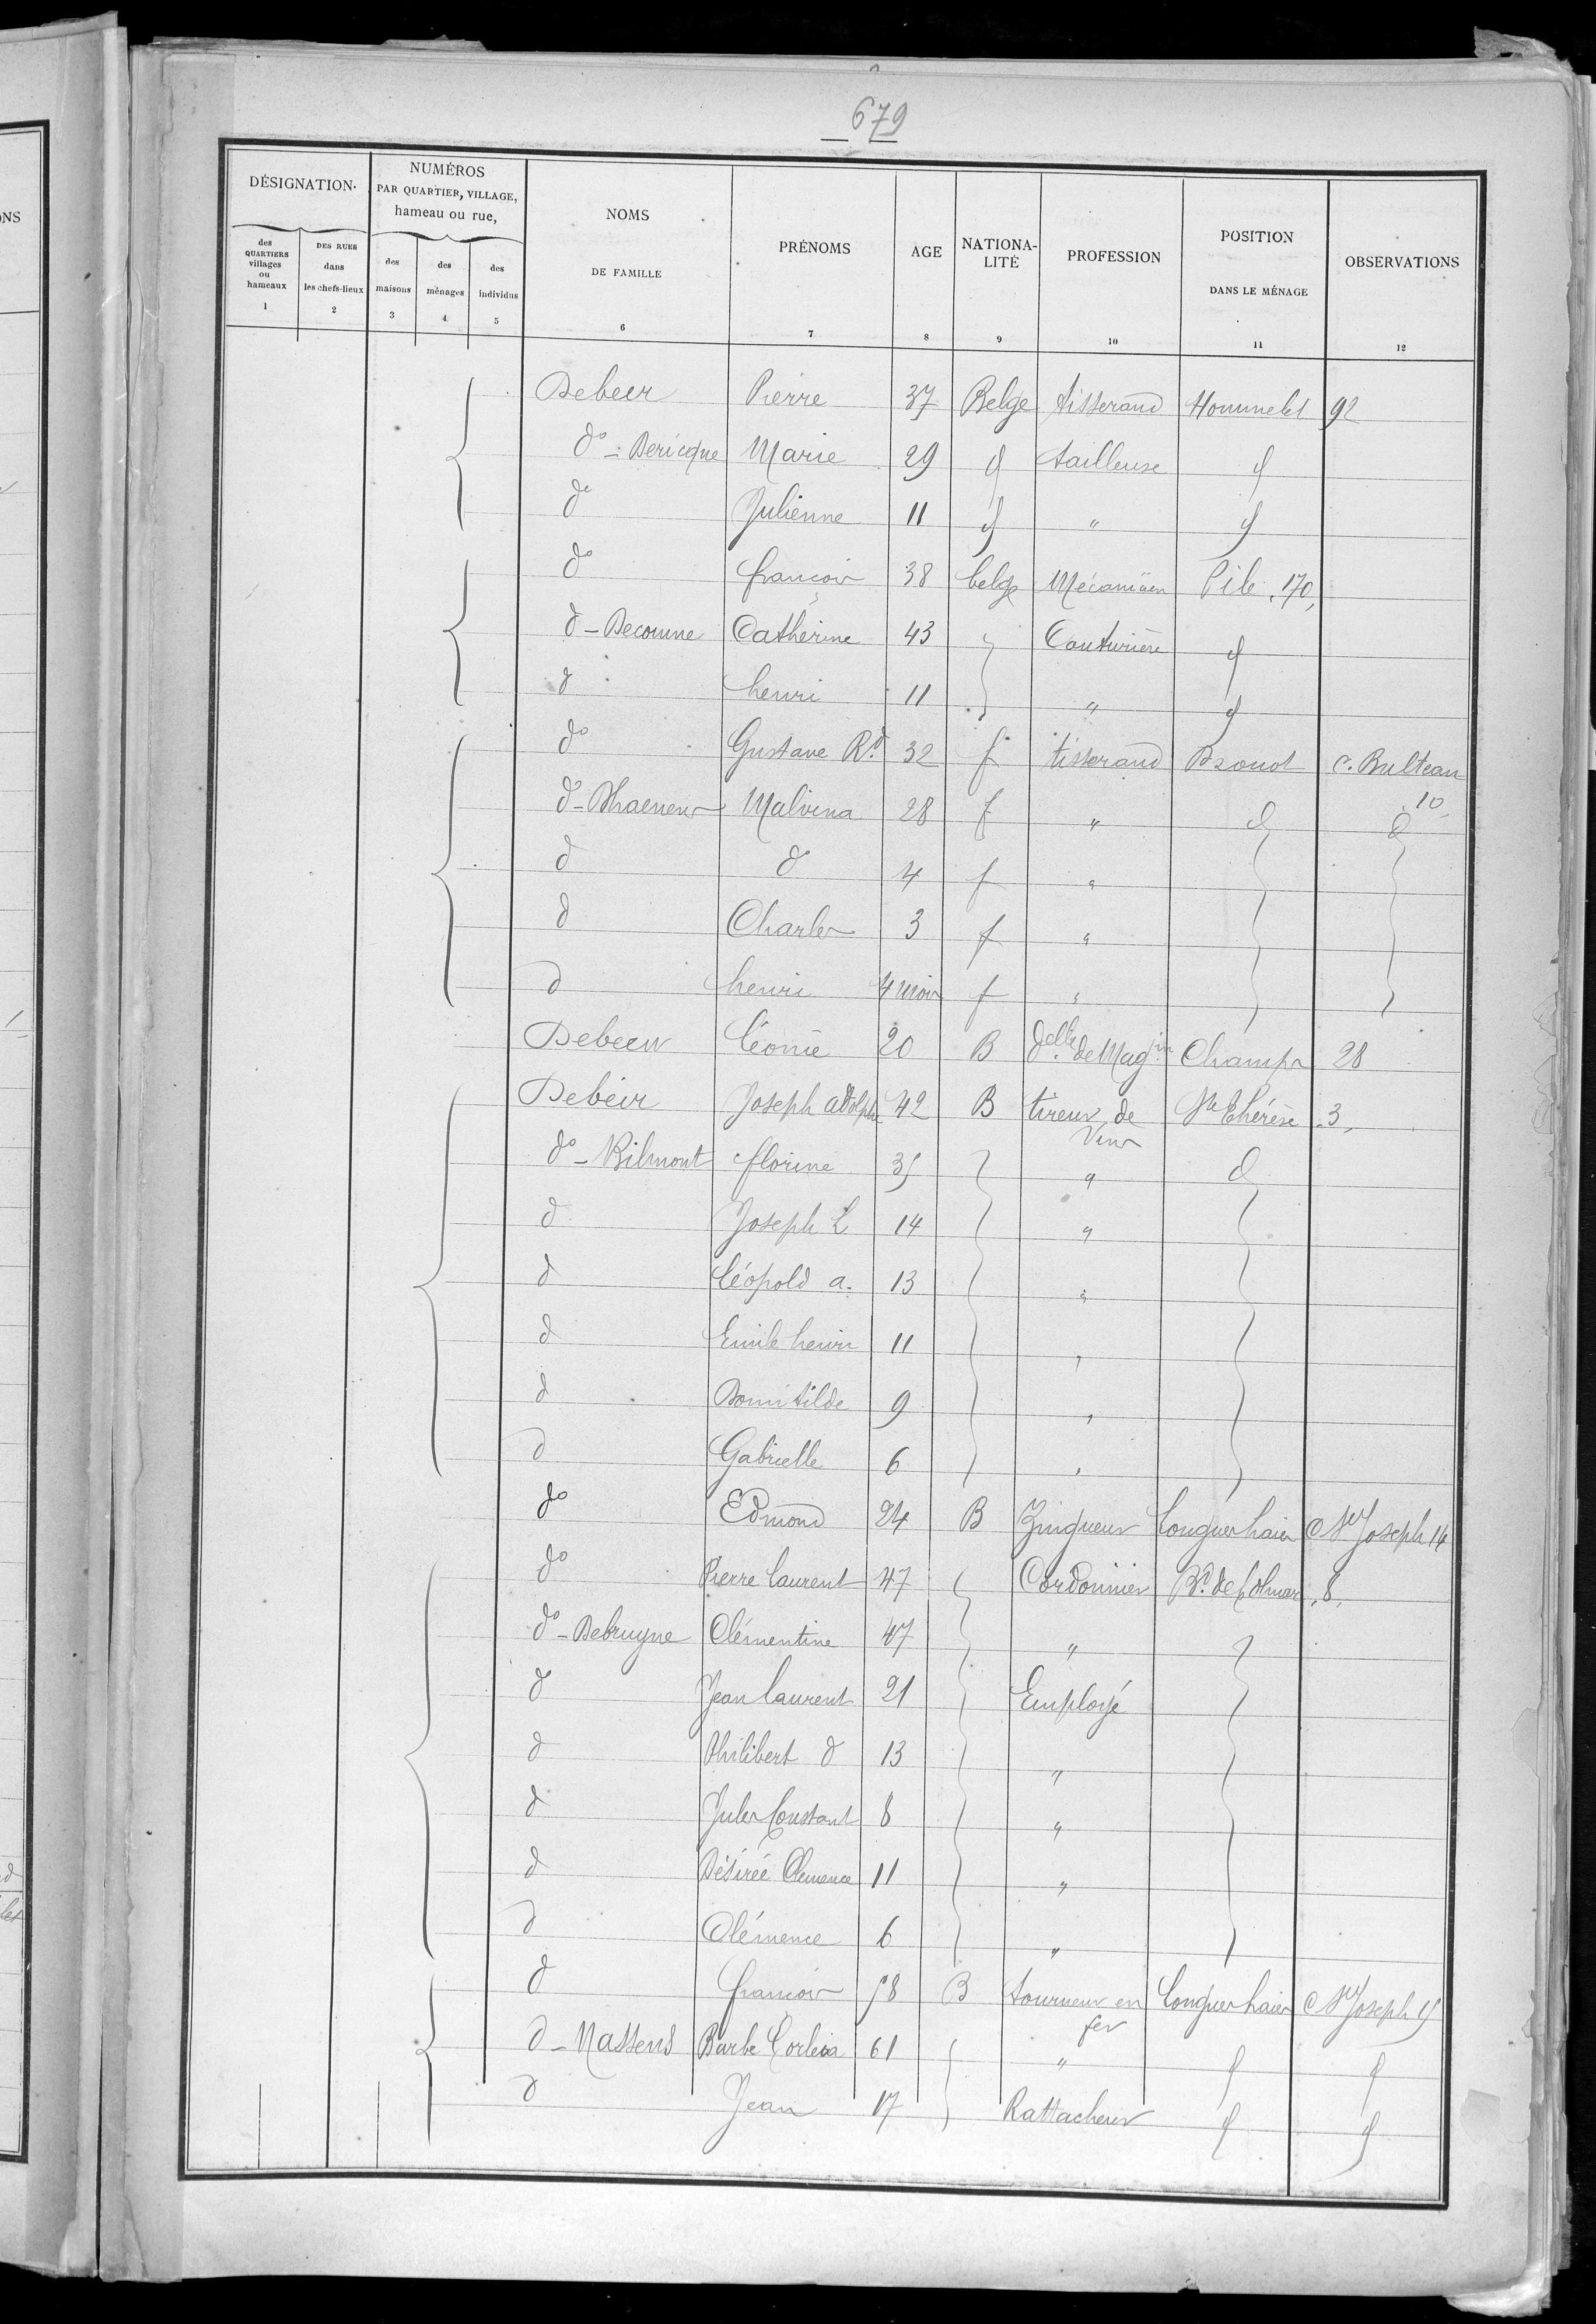 679
DÉSIGNATION
NUMÉROS
PAR QUARTIER, VILLAGE,
hameau ou rue,
des QUARTIERS villages ou hameaux
DES RUES dans les chefs-lieux
des maisons
des ménages
des individus
NOMS
DE FAMILLE
PRÉNOMS
AGE
NATIONALITÉ
PROFESSION
POSITION
DANS LE MÉNAGE
OBSERVATIONS
1 2 3 4 5 6 7 8 9 10 11 12
Debeer Pierre 37 Belge tisserand Hommelet 92
do - Dericque Marie 29 d tailleuse d
do Julienne 11 d " d
do françois 38 belge Mécanicien Pile, 170,
d - Catherine 43 Couturière d
d henri 11 " d
do Gustave Rd 32 f tisserand c. Bulteau
10
do - Malvina 28 f " d d
d d 4 f "
d Charles 3 f "
d henri 4 mois f "
Debeer Léonie 20 B delle de Magin Champs 28
Debeir Joseph adolphe 42 B tireur de Ste Thérèse 3
Vins
do - Rilmont florine 35 " d
d Joseph L 14 "
d Léopold a. 13 "
d Emile henri 11 "
d Domitilde 9 "
d Gabrielle 6 "
do Edmond 24 B Zingueur Longues haies c St Joseph 14
do Pierre Laurent 47 Cordonnier Bd de Colmar, 8,
do - Debruyne Clémentine 47 "
d Jean Laurent 21 Employé
d Philibert d 13 "
d Jules Constant 8 "
d Désirée Clemence 11 "
d Clémence 6 "
d françois 58 B tourneur en Longues haies c St Joseph 15
fer
d - Barbe 61 " d d
d Jean 17 Rattacheur d d